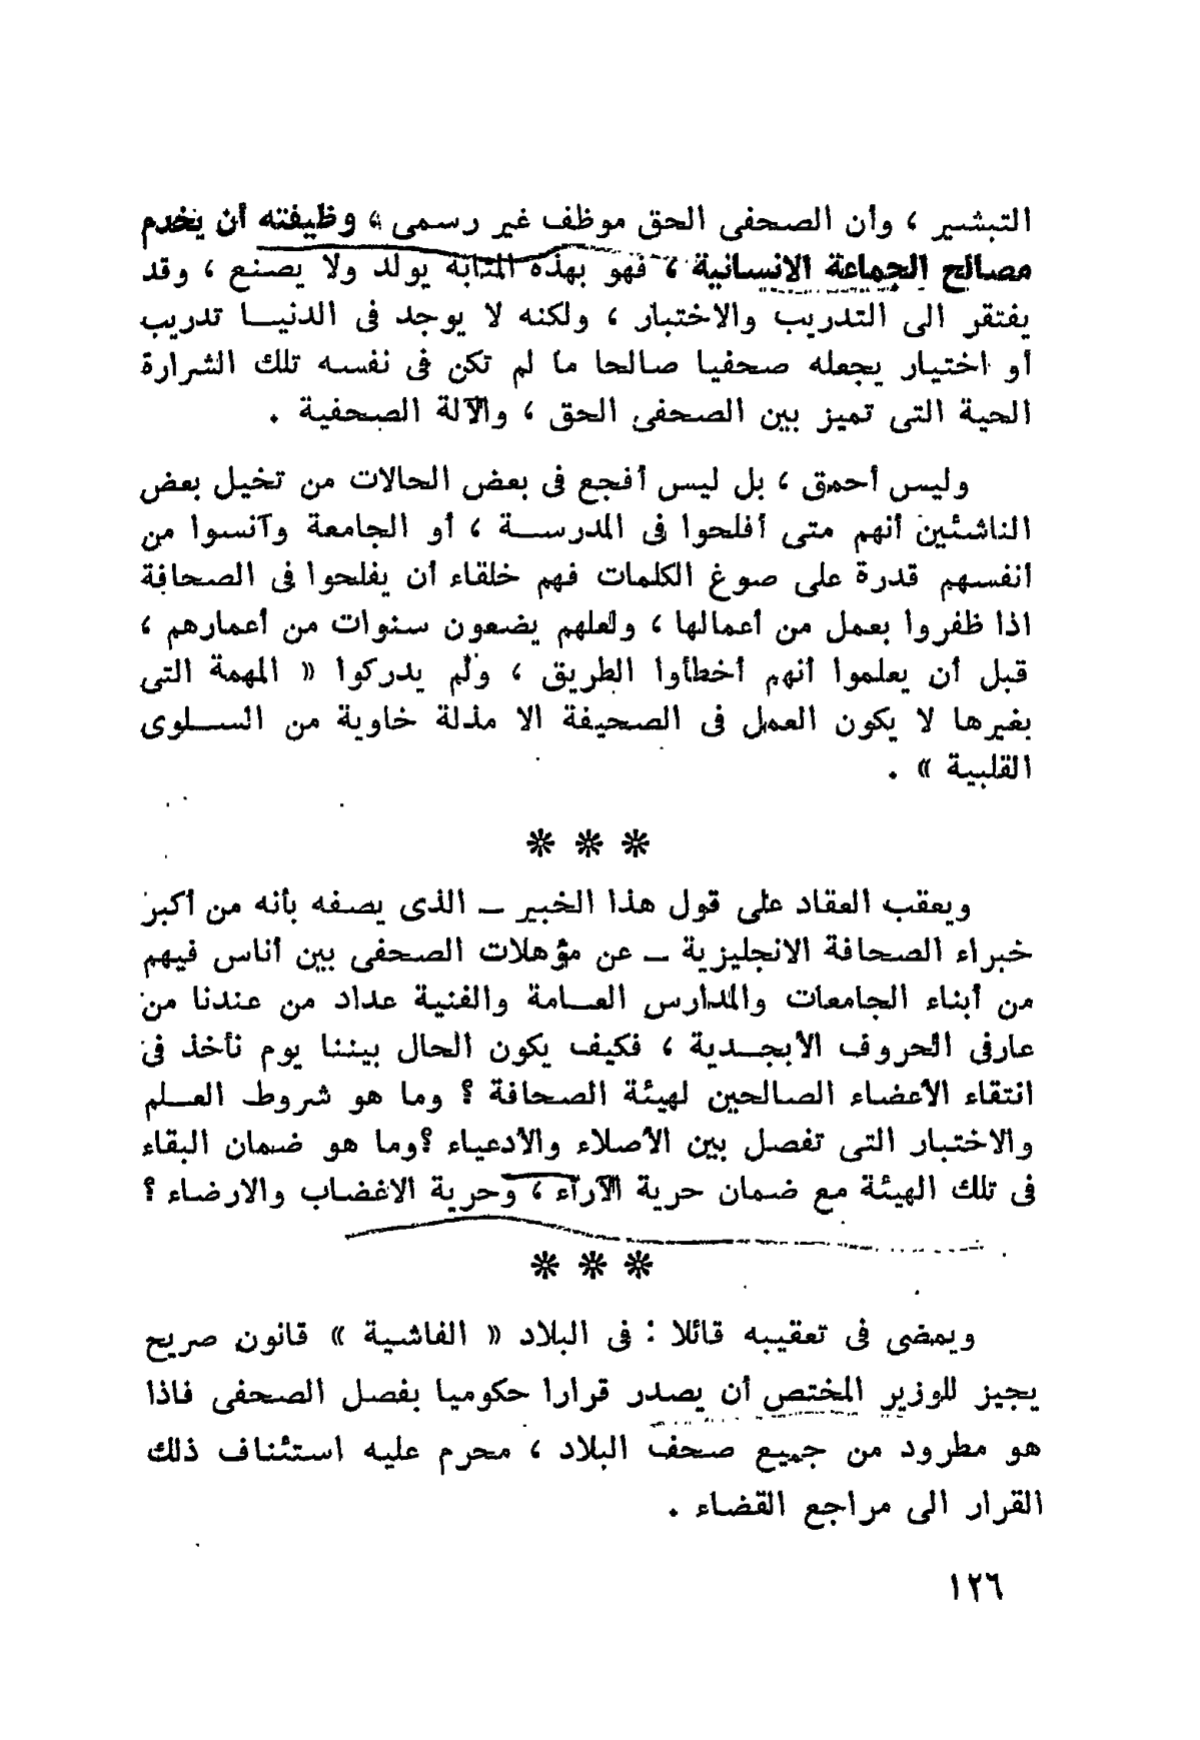 التبشير ، وأن الصحفى الحق موظف غير رسمى ، وظيفته أن يخدم
مصالح الجماعة الانسانية ، فهو بهذه المثابة يولد ولا يصنع ، وقد
يفتقر الى التدريب والاختبار ، ولكنه لا يوجد فى الدنيا تدريب
أو اختيار يجعله صحفيا صالحا ما لم تكن فى نفسه تلك الشرارة
الحية التى تميز بين الصحفى الحق ، والآلة الصحفية .
وليس أحمق ، بل ليس أفجع فى بعض الحالات من تخيل بعض
الناشئين أنهم متى أفلحوا فى المدرسة ، أو الجامعة وآنسوا من
أنفسهم قدرة على صوغ الكلمات فهم خلقاء أن يفلحوا فى الصحافة
اذا ظفروا بعمل من أعمالها ، ولعلهم يضعون سنوات من أعمارهم ،
قبل أن يعلموا أنهم أخطأوا الطريق ، ولم يدركوا « المهمة التى
بغيرها لا يكون العمل فى الصحيفة الا مذلة خاوية من السلوى
القلبية » .
❊ ❊ ❊
ويعقب العقاد على قول هذا الخبير ــ الذى يصفه بأنه من أكبر
خبراء الصحافة الانجليزية ــ عن مؤهلات الصحفى بين أناس فيهم
من أبناء الجامعات والمدارس العامة والفنية عداد من عندنا من
عارفى الحروف الأبجدية ، فكيف يكون الحال بيننا يوم نأخذ فى
انتقاء الأعضاء الصالحين لهيئة الصحافة ؟ وما هو شروط العلم
والاختبار التى تفصل بين الأصلاء والأدعياء ؟وما هو ضمان البقاء
فى تلك الهيئة مع ضمان حرية الآراء ، وحرية الاغضاب والارضاء ؟
❊ ❊ ❊
ويمضى فى تعقيبه قائلا : فى البلاد « الفاشية » قانون صريح
يجيز للوزير المختص أن يصدر قرارا حكوميا بفصل الصحفى فاذا
هو مطرود من جميع صحف البلاد ، محرم عليه استئناف ذلك
القرار الى مراجع القضاء .
١٢٦